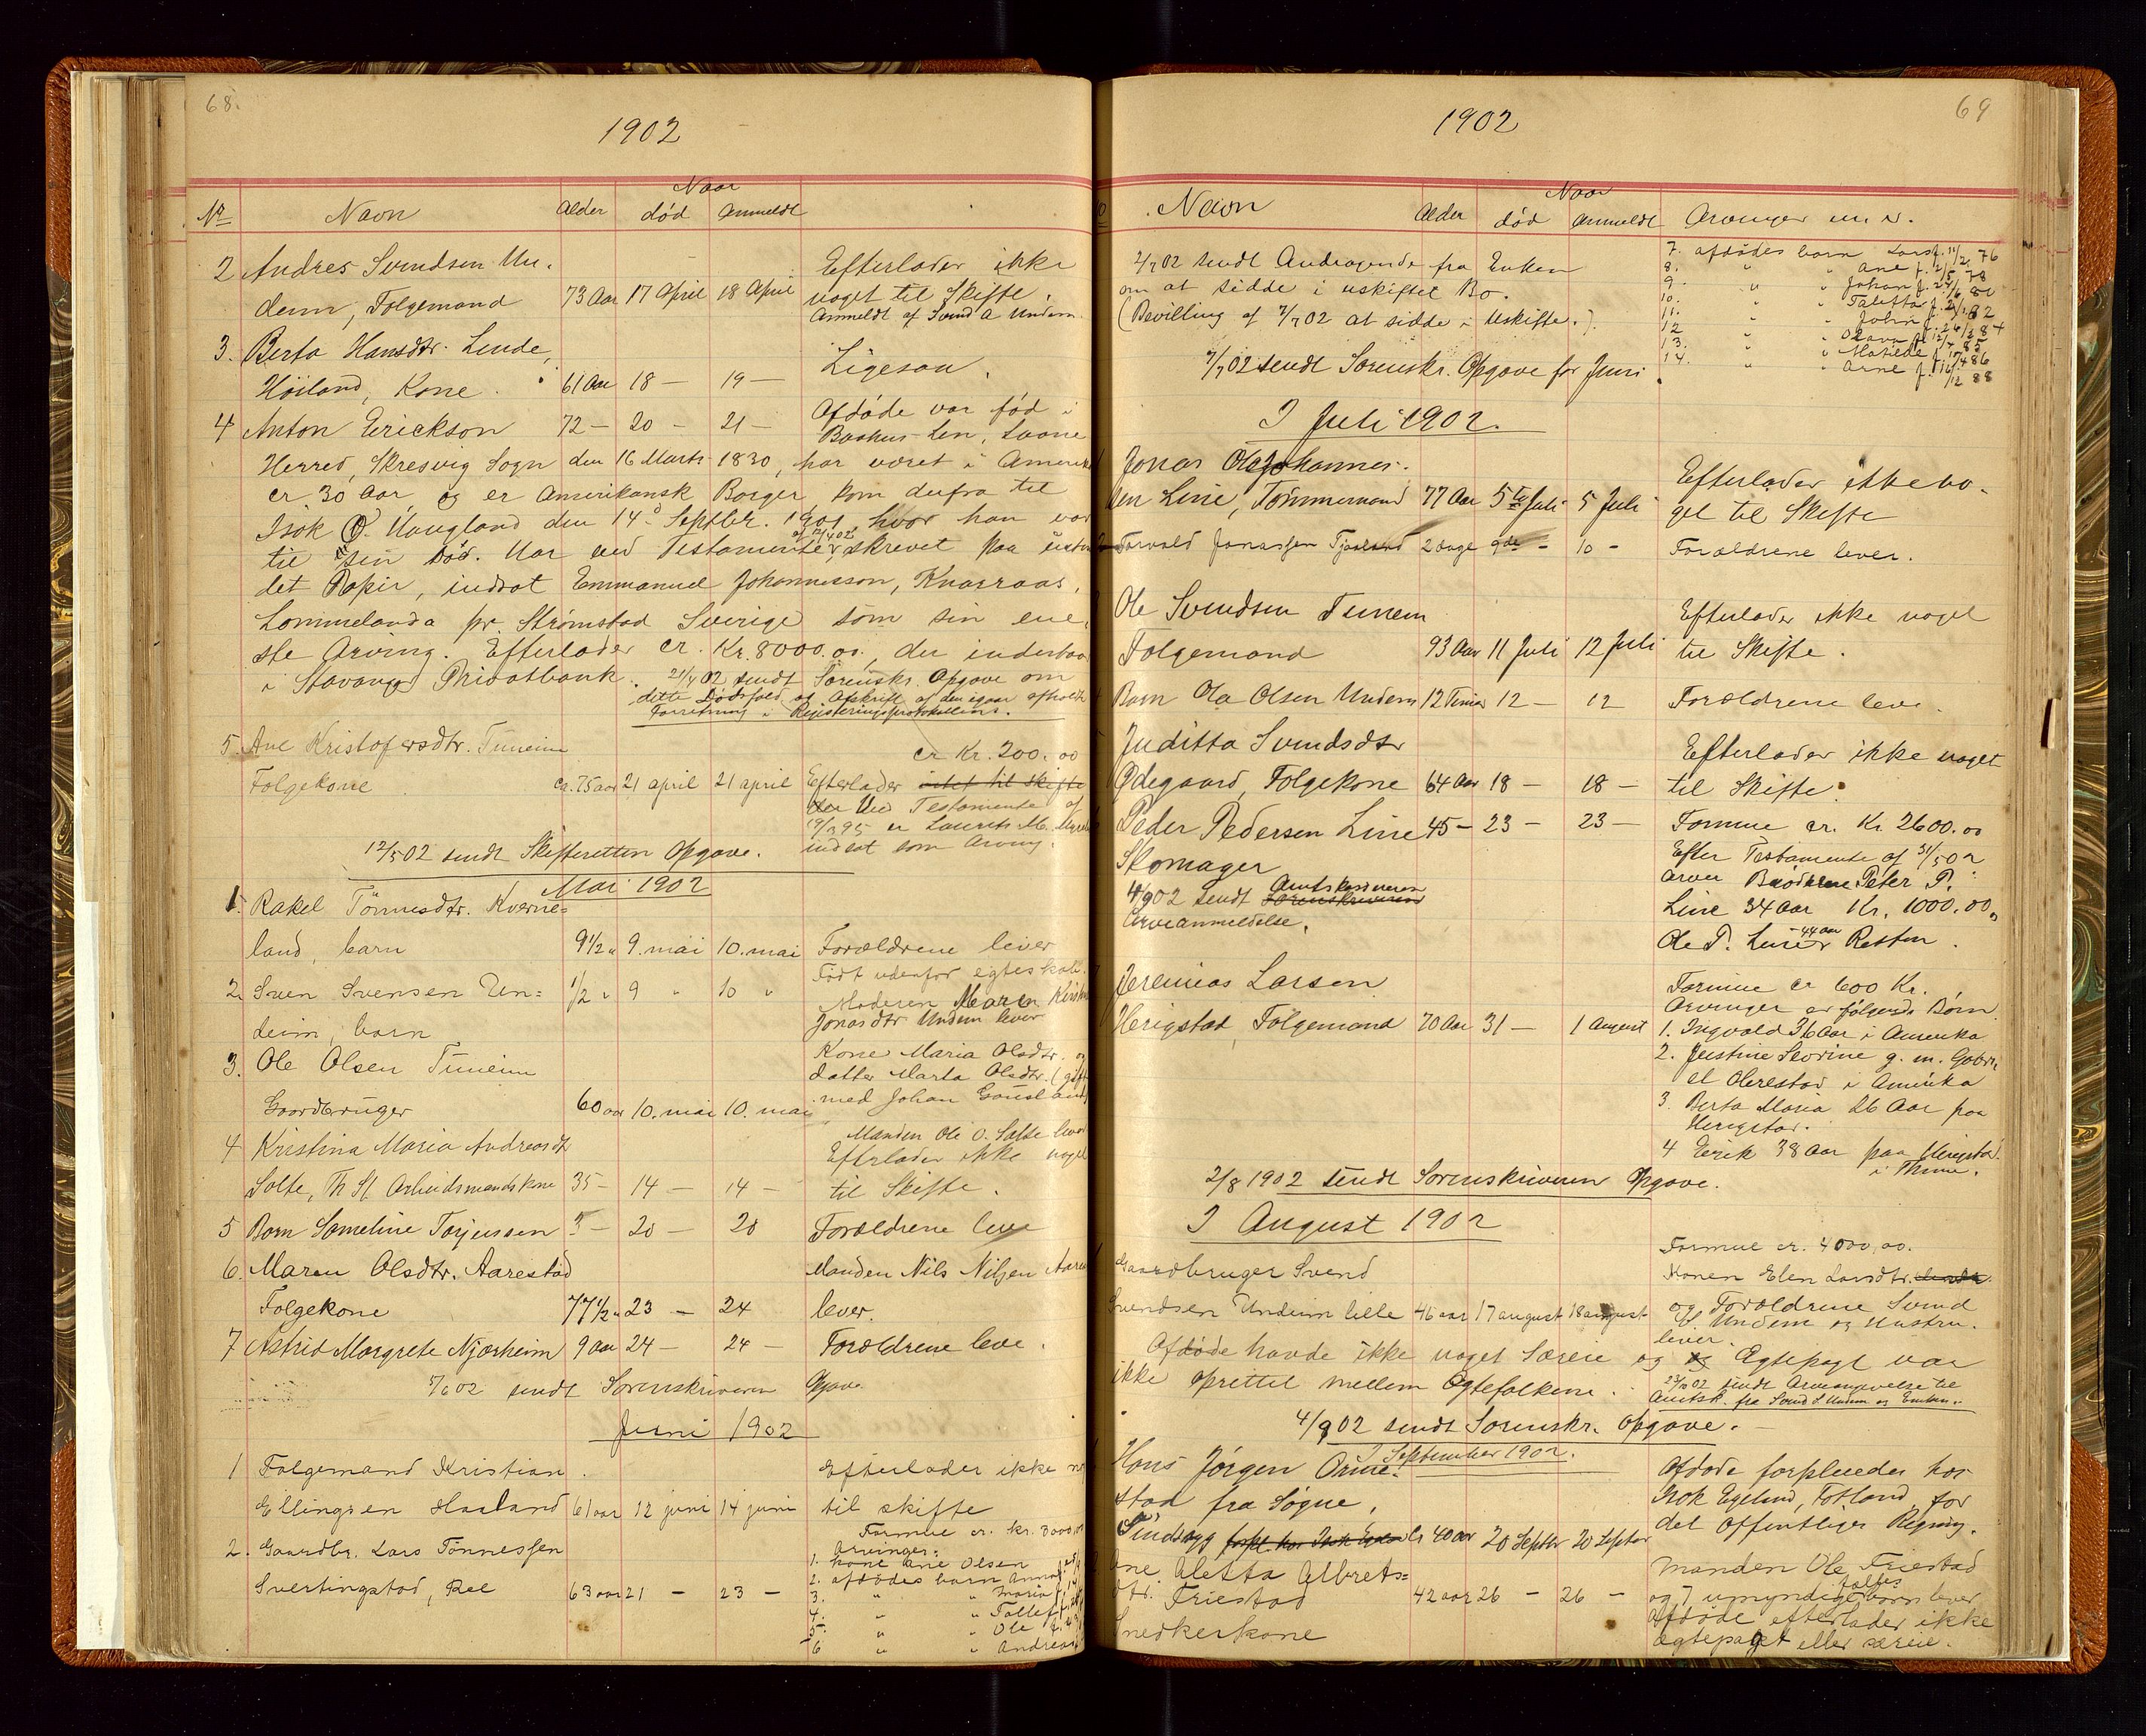 68.
1902
Naar
№ Navn Alder död Anmeldt
2 Andres Svendsen Un-
deim, Folgemand 73 Aar 17 April 18 April
Efterlader ikke
noget til Skifte.
Anmeldt af Svend A Undem
3. Berta Hansdtr. Lende,
Höiland, Kone. 61 Aar 18 — 19 —
Ligesaa.
4 Anton Erickson 72 — 20 — 21 —
Afdøde var fød i
Baahus-Len, Laane
Herred, Skresvig Sogn den 16 Marts 1830, har været i Amerika
cr 30 Aar, og er Amerikansk Borger, kom derfra til
Isok O. Haugland den 14d Septbr. 1901, hvor han var
til sin Död. Har ved Testamente af 12/4 02 skrevet paa
det Papir, indsat Emmanuel Johannesson, Knarraas,
Lommelanda pr. Strømstad Sverige som sin ene-
ste Arving. Efterlader cr. Kr. 8000.00, der
i Stavanger Privatbank. 21/4 02 sendt Sorenskr. Opgave om
dette Dødsfald og Afskrift af den igaar afholdte
Forretning i Registreringsprotokollens.
5. Ane Kristofersdtr. Tuneim
Folgekone ca. 75 aar 21 april 21 april
cr Kr. 200.00
Efterlader intet til skifte
Ved Testamente af
19/3 95 er Laurits M.
indsat som Arving.
12/5 02 sendt Skifteretten Opgave.
Mai 1902
1. Rakel Tönnesdtr. Kverne=
land, barn 9 1/2 " 9. mai 10. mai Forældrene lever
2. Sven Svensen Un= 1/2 " 9 " 10 "
deim, barn
Födt udenfor egteskab.
Moderen Maria
Jonasdtr Undem lever
3. Ole Olsen Tuneim
Gaardbruger 60 aar 10. mai 10. mai
Kone Maria Olsdtr. og
datter Marta Olsdtr. (gift
med Johan Gousland)
4 Kristina Maria Andreasdtr
Salte, Th St. Arbeidsmandskone 35 — 14 — 14 —
Manden Ole O. Salte lever
Efterlader ikke noget
til Skifte.
5 Barn Sameline Torjussen 3 — 20 — 20 Forældrene leve
6. Maren Olsdtr. Aarestad
Folgekone 77 1/2 " 23 — 24
Manden Nils Nilsen
lever.
7 Astrid Margrete Njærheim 9 Aar 24 — 24 — Forældrene leve.
5/6 02 sendt Sorenskriveren Opgave
Juni 1902
1 Folgemand Kristian
Ellingsen Haaland 61 aar 12 juni 14 juni
Efterlader ikke
til skifte
2. Gaardbr. Lars Tönnessen
Svertingstad, Ree 63 aar 21 — 23 —
Formue cr. kr. 3000,00
Arvinger:
1. kone Ane Olsen
2. afdödes barn Anna
3. " " Maria
4. " " Tollef
5. " " Ole
6 " " Andreas
69
1902
Naar
Navn Alder död Anmeldt Arvinger m. v.
2/7 02 sendt Andragende fra Enken
om at sidde i uskiftet Bo.
(Bevilling af 7/7 02 at sidde i Uskifte.).
7/7 02 sendt Sorenskr. Opgave for Juni.
7. afdödes barn Lars f. 11/2 76
8. " " Ane f. 2/5 78
9. " " Johan f. 24/6 80
10. " " Taletta f. 21/1 82
11. " " John f. 26/3 84
12 " " Olava f. 12/4 85
13. " " Matilde f. 17/4 86
14. " " Arne f. 16/12 88
I Juli 1902.
Jonas Johannes-
sen Line, Tömmermand 77 Aar 5te Juli 5 Juli
Efterlader ikke no-
get til Skifte
Torvald Jonassen Tjaaland 2 dage 9de — 10 — Forældrene lever.
Ole Svendsen Tunem
Folgemand 93 Aar 11 Juli 12 Juli
Efterlader ikke noget
til Skifte.
Barn Ola Olsen Undem 12 Timer 12 — 12 Forældrene leve.
Juditta Svendsdtr
Ødegaard, Folgekone 64 Aar 18 — 18 —
Efterlader ikke noget
til Skifte.
Peder Pedersen Line 45 — 23 — 23 —
Skomager
4/9 02 sendt Amtskasseren Sorenskriveren
Arveanmeldelse.
Formue cr. Kr 2600.00
Efter Testamente af 31/5 02
arver Brødrene Peter P.
Line 34 Aar Kr. 1000.00,
Ole P. Line 44 aar Resten.
Jeremias Larsen
Herigstad, Folgemand 70 Aar 31 — 1 August
Formue cr 600 Kr.
Arvinger er følgende Børn
1. Ingvald 36 Aar i Amerika
2. Justine Severine g. m. Gabri-
el Olerestad i Amerika
3. Berta Maria 26 Aar paa
Herigstad.
4 Eirik 38 Aar paa Herigstad
i Thime.
2/8 1902 sendt Sorenskriveren Opgave.
I August 1902
Gaardbruger Svend
Svendsen Undeim lille 46 aar 17 august 18 august
Formue cr. 4000,00.
Konen Elen Larsdtr.
og Forældrene Svend
S. Undem og Hustru.
lever.
Afdöde havde ikke noget Særeie og Ægtepagt var
ikke oprettet mellem Ægtefolkene.
23/ 02 sendt Arveangivelse til
Amtsk. fra Svend S Undem og Enken.
4/9 02 sendt Sorenskr. Opgave.
I September 1902.
Hans Jörgen Orme-
stad fra Søgne,
Sindsyg forpl. hos Isok Egelund cr 40 aar 20 Septbr 20 Septbr
Afdøde forpleiedes hos
Isok Egelund, Fotland, for
det offentliges Regning.
Ane Aletta Albrets=
dtr. Friestad 42 aar 26 — 26 —
Snedkerkone
Manden Ole Friestad
og 7 umyndige fælles barn lever
Afdöde efterlader ikke
ægtepagt eller særeie.